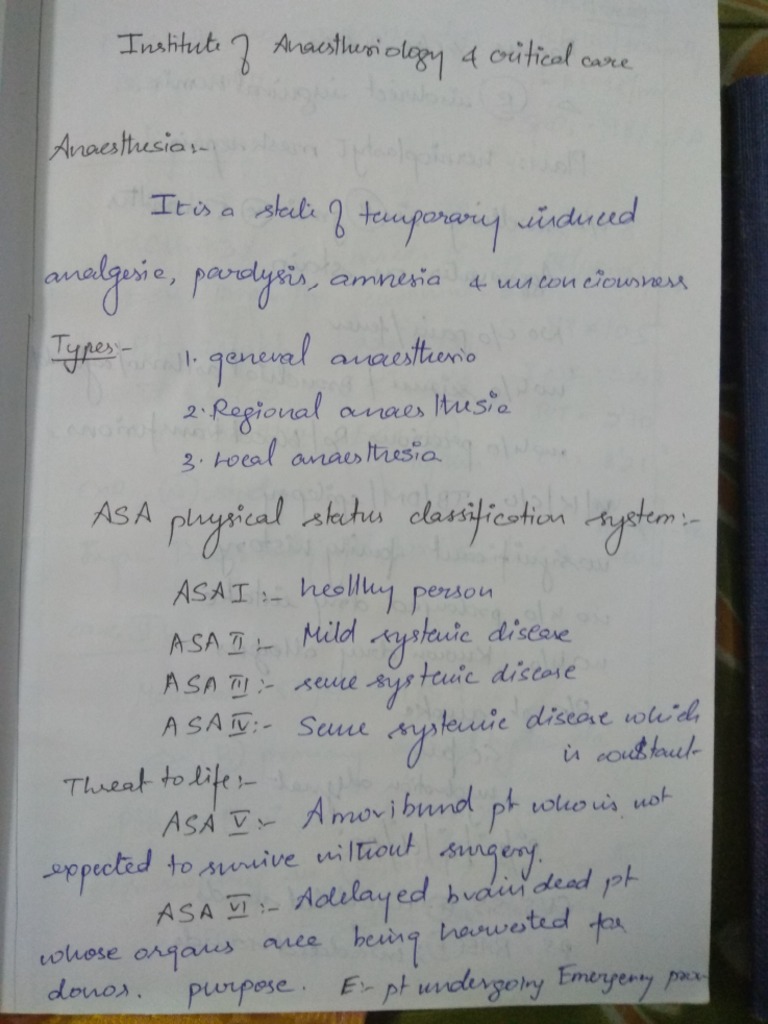 Institute of Anaesthesiology & critical care
Anaesthesia:-
It is a state of temporary induced
analgesia, paralysis, amnesia & unconciousness
Types:-
1. general anaesthesia
2. Regional anaesthesia
3. Local anaesthesia
ASA physical status classification system:-
ASA I :- healthy person
ASA II :- Mild systemic disease
ASA III :- severe systemic disease
ASA IV :- Severe systemic disease which
is constant
Threat to life:-
ASA V :- A moribund pt who is not
expected to survive without surgery.
ASA VI :- A delayed brain dead pt
whose organs are being harvested for
donor. purpose. E:- pt undergoing Emergency